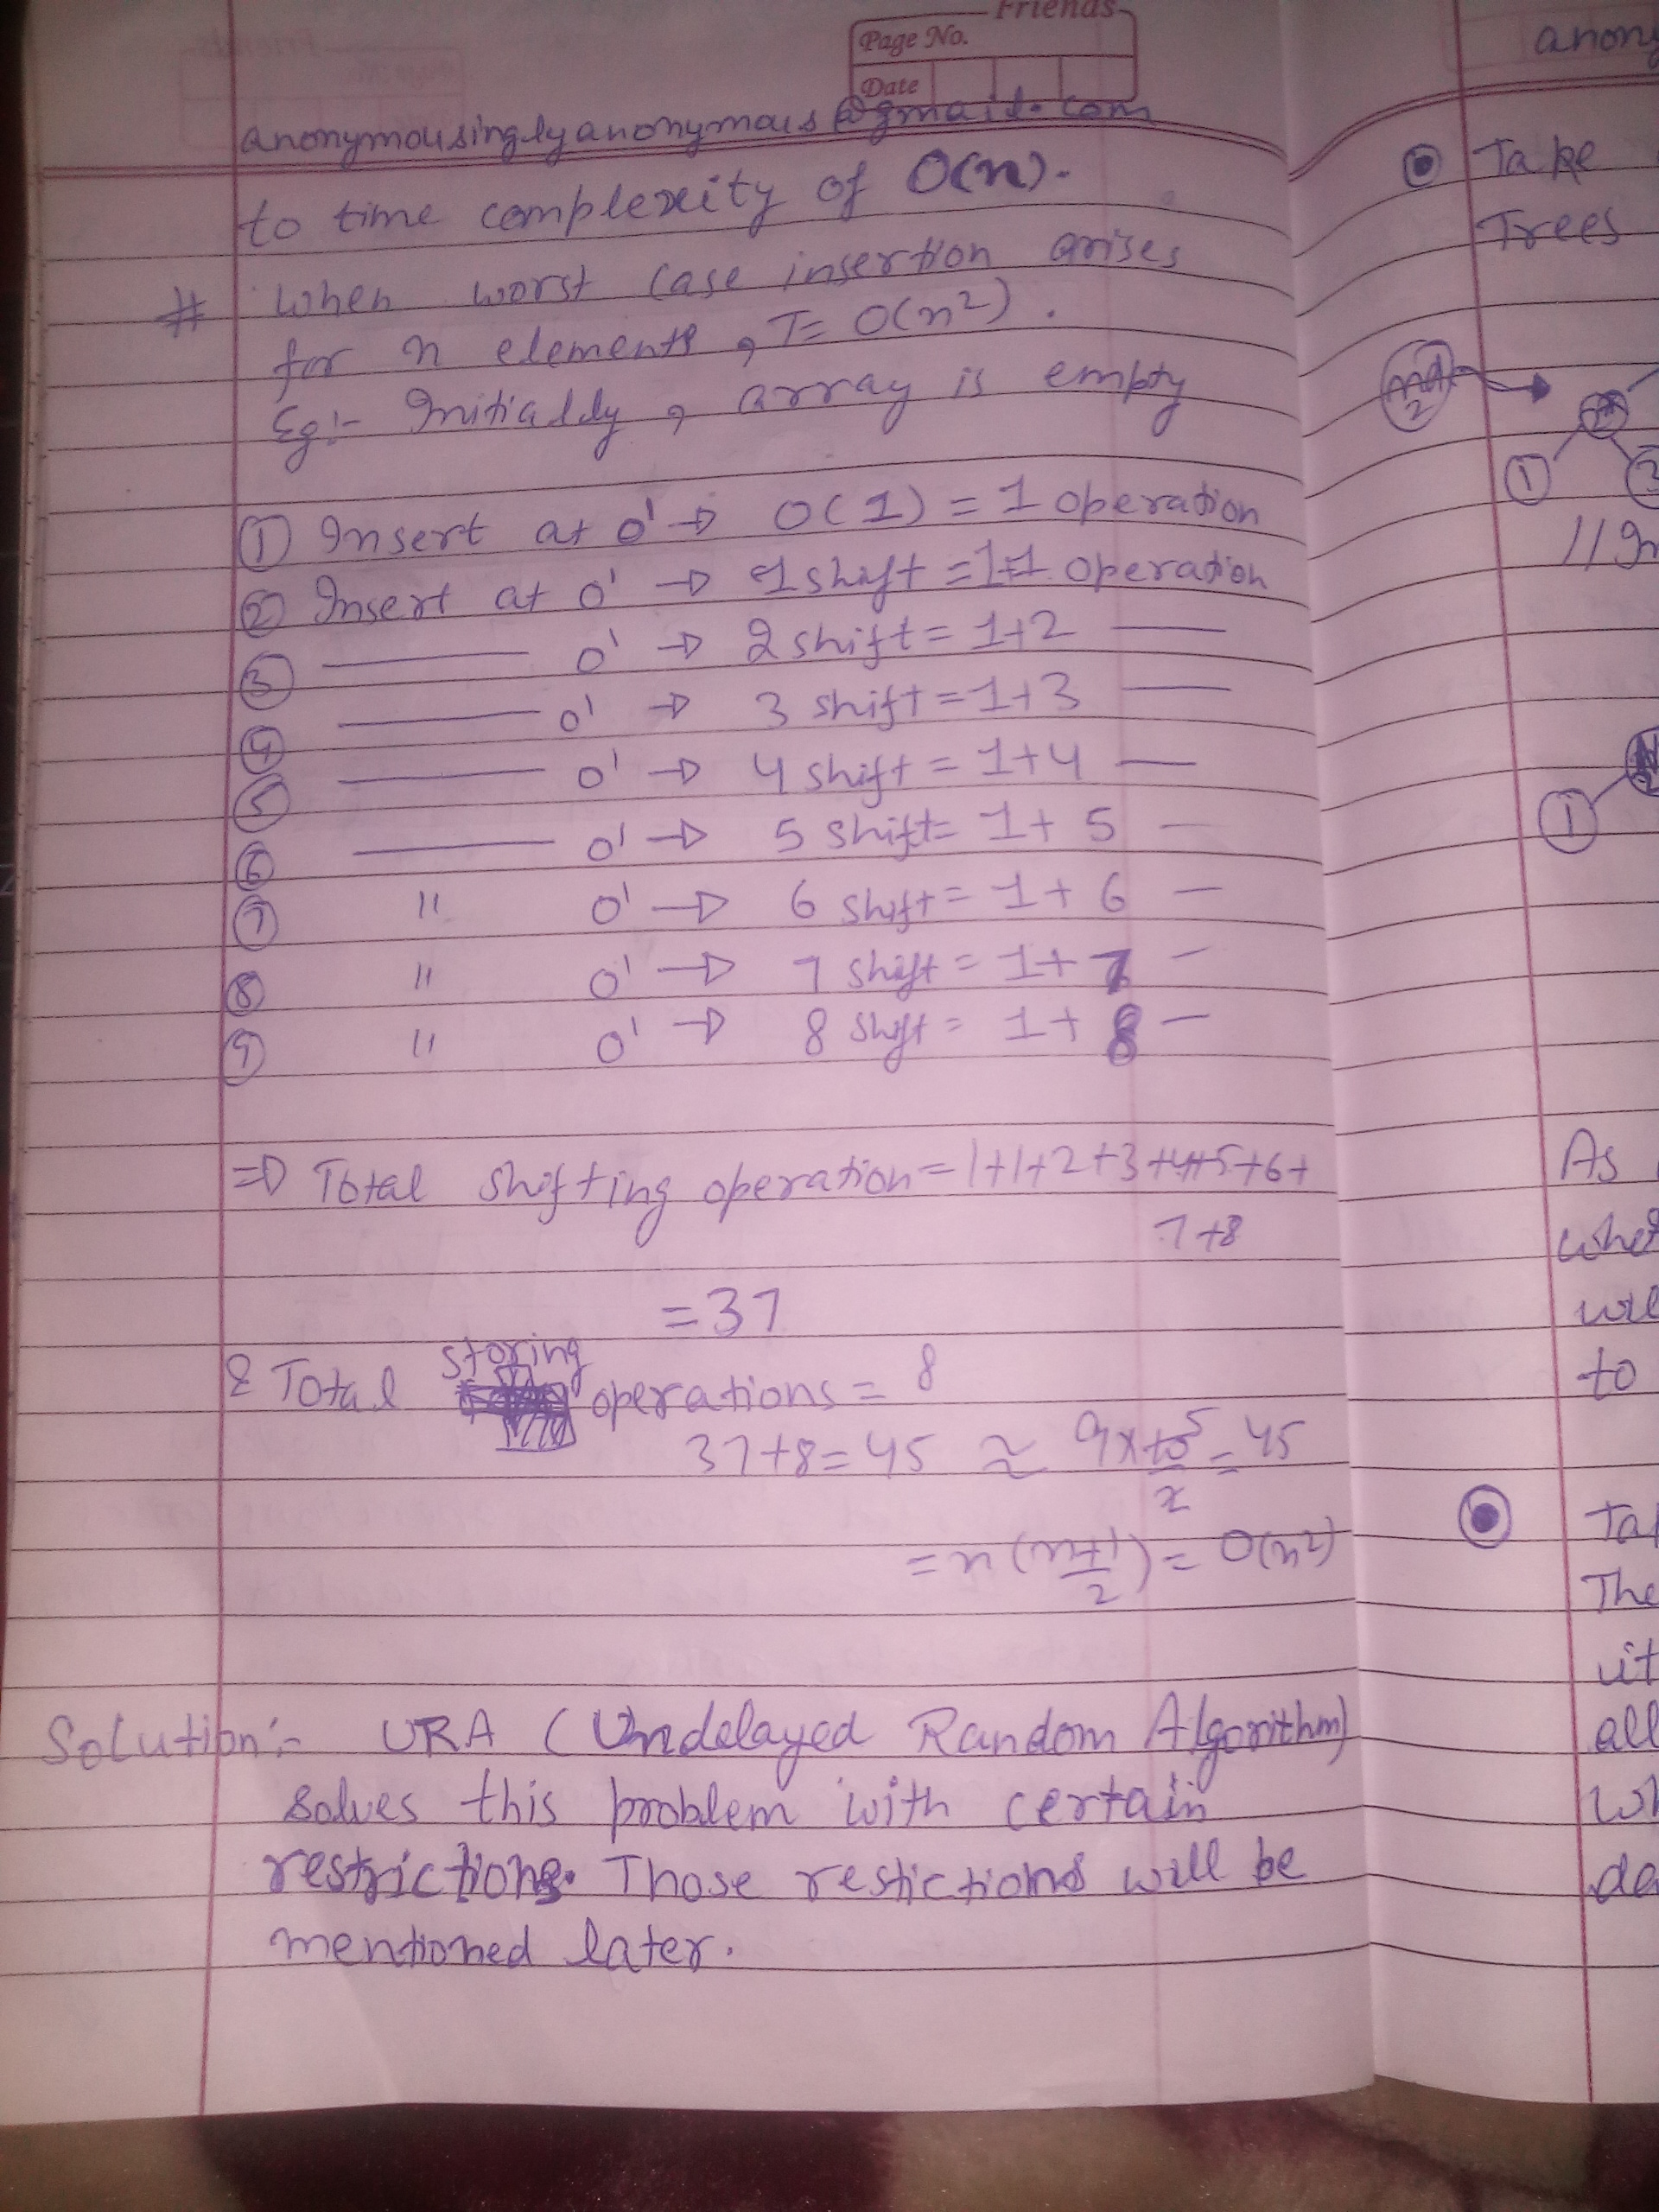 Friends
Page No.
Date
anonymousinglyanonymous@gmail.com
to time complexity of O(n).
# When worst case insertion arises
for n elements, T= O(n²).
Eg:- Initially, array is empty
① Insert at 0' → O(1) = 1 operation
② Insert at 0' → 1 shift = 1+1 operation
③ —— 0' → 2 shift = 1+2 ——
④ —— 0' → 3 shift = 1+3 ——
⑤ —— 0' → 4 shift = 1+4 ——
⑥ —— 0' → 5 shift = 1+5 —
⑦ " 0' → 6 shift = 1+6 —
⑧ " 0' → 7 shift = 1+7 —
⑨ " 0' → 8 shift = 1+8 —
⇒ Total shifting operation = 1+1+2+3+4+5+6+
7+8
= 37
& Total storing operations = 8
37+8=45 ≈ 9×10/2 5 = 45
= n(n+1/2) = O(n²)
Solution:- URA (Undelayed Random Algorithm)
solves this problem with certain
restrictions. Those restictions will be
mentioned later.
Take
Trees
2
1
3
1
As
to
The
it
all